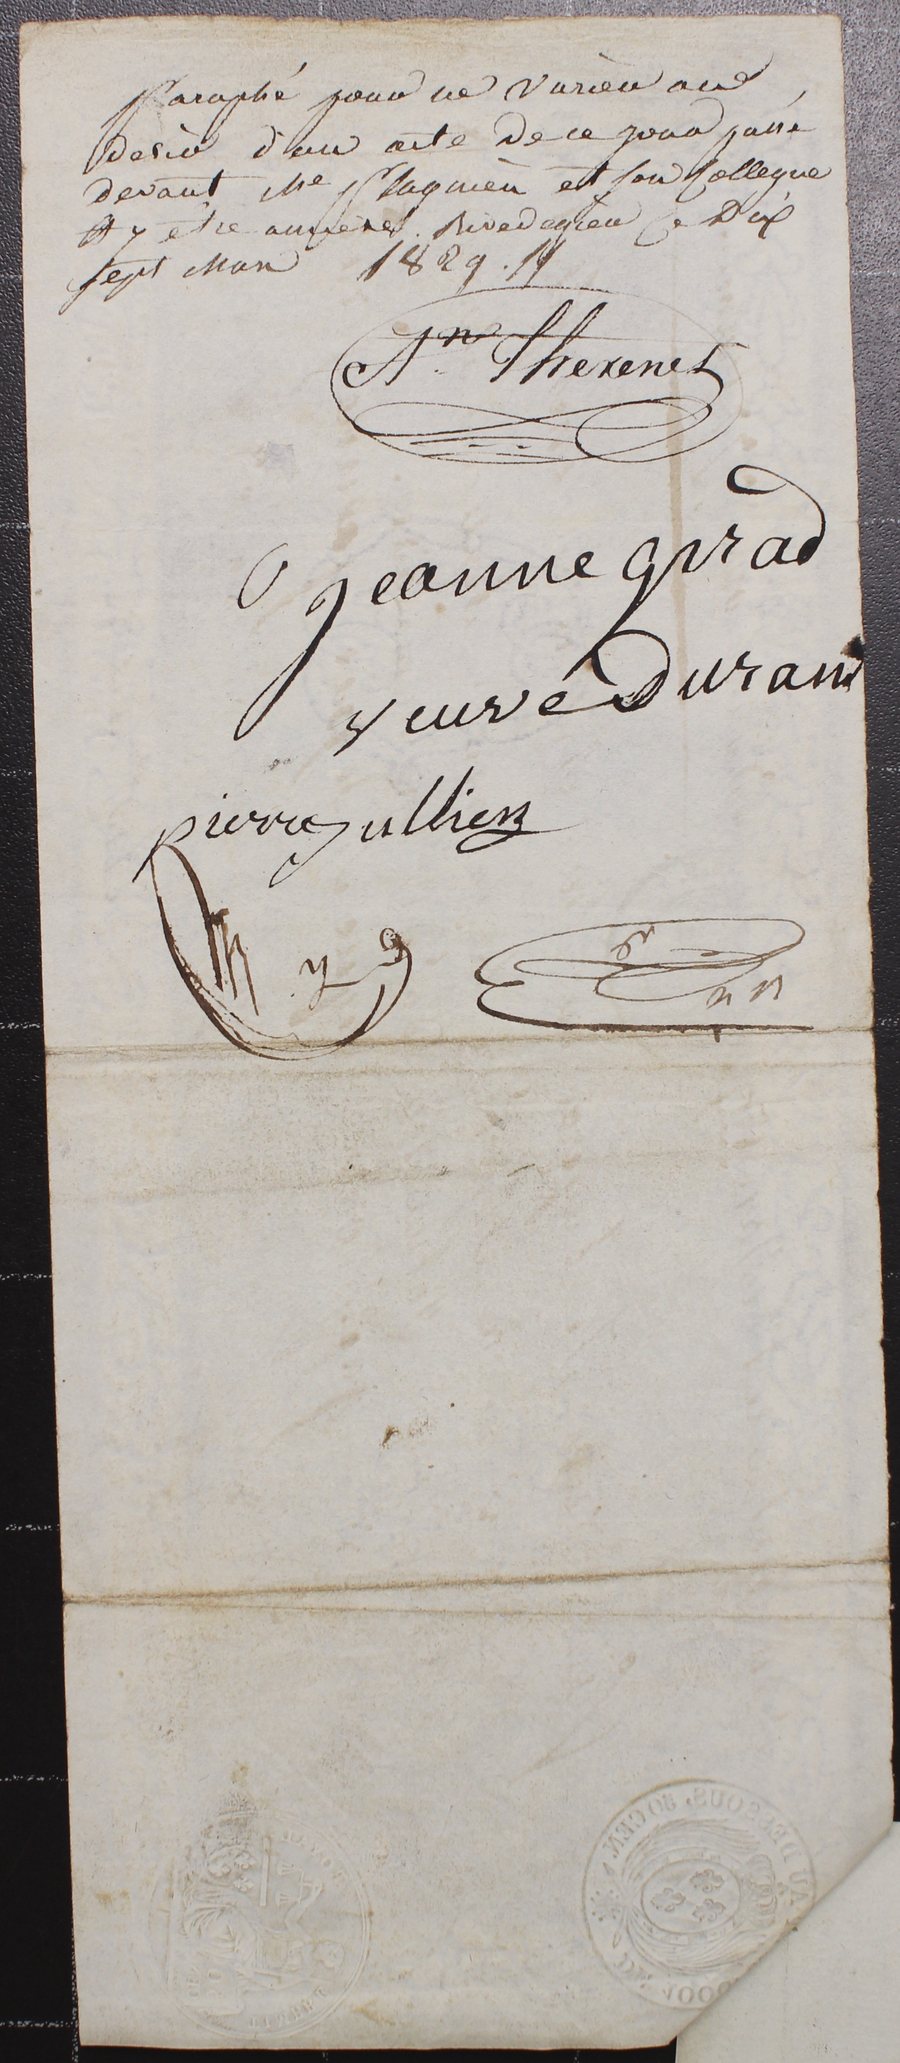 Paraphé pour ne varier au
desir d'un acte de ce jour passé
devant Me et son Collegue
p y etre annexé. Rivedegier Ce Dix
sept Mars 1829.
An. Thevenet
Jeanne girad
veuve Durand
pierre jullien
AU DESSOUS,